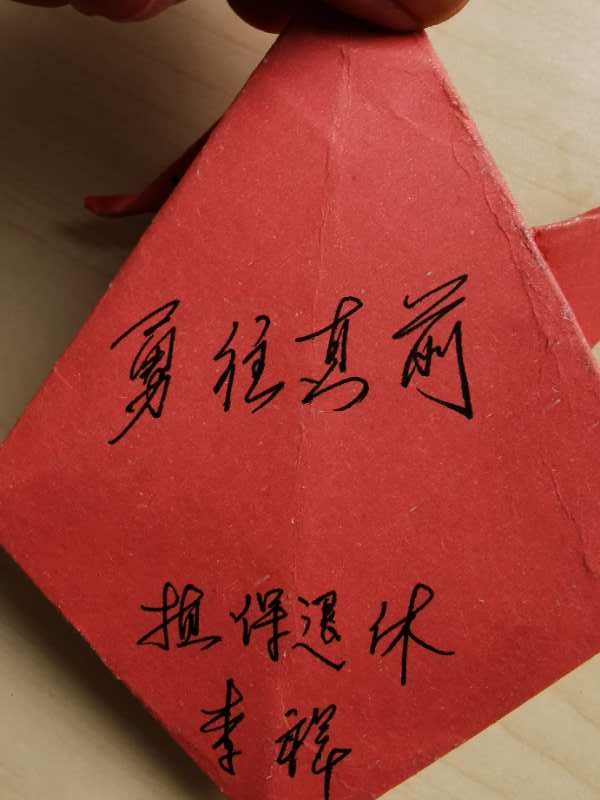 勇往直前
担保退休
李祥